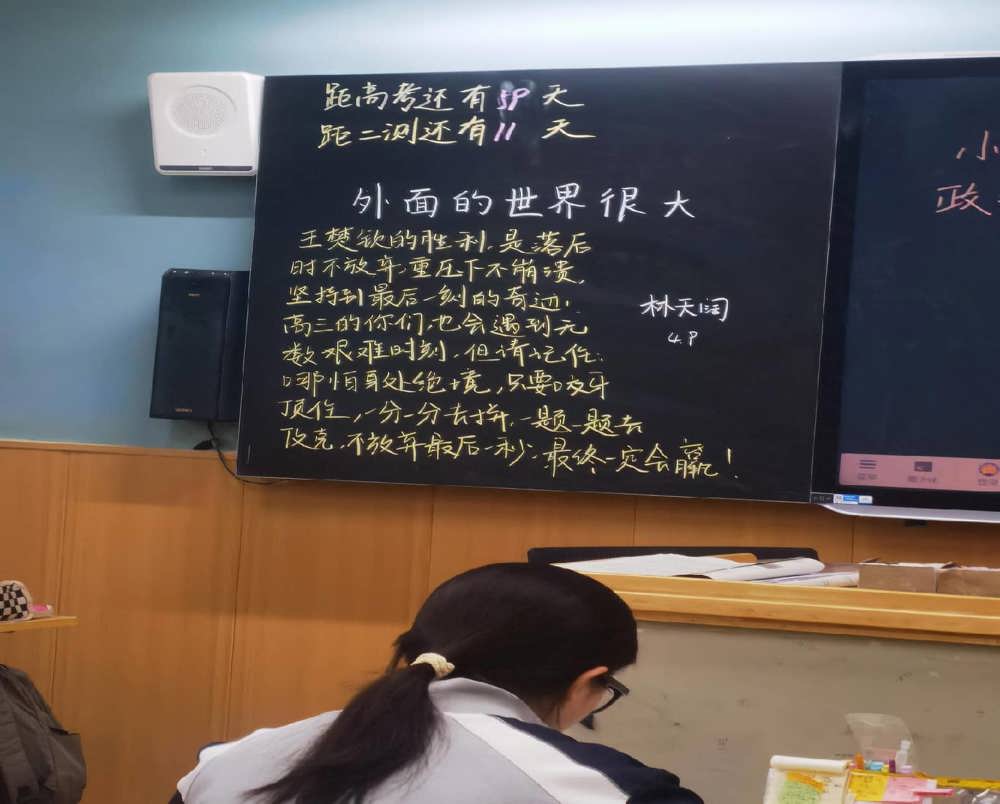 距高考还有59天
距二测还有11天
外面的世界很大
王楚钦的胜利,是落后
时不放弃,重压下不崩溃,
坚持到最后一刻的奇迹!
高三的你们,也会遇到无
数艰难时刻,但请记住:
哪怕身处绝境,只要咬牙
顶住,一分一分去拼,一题一题去
攻克,不放弃最后一秒,最终一定会赢!
林天阔
4.8
小
政